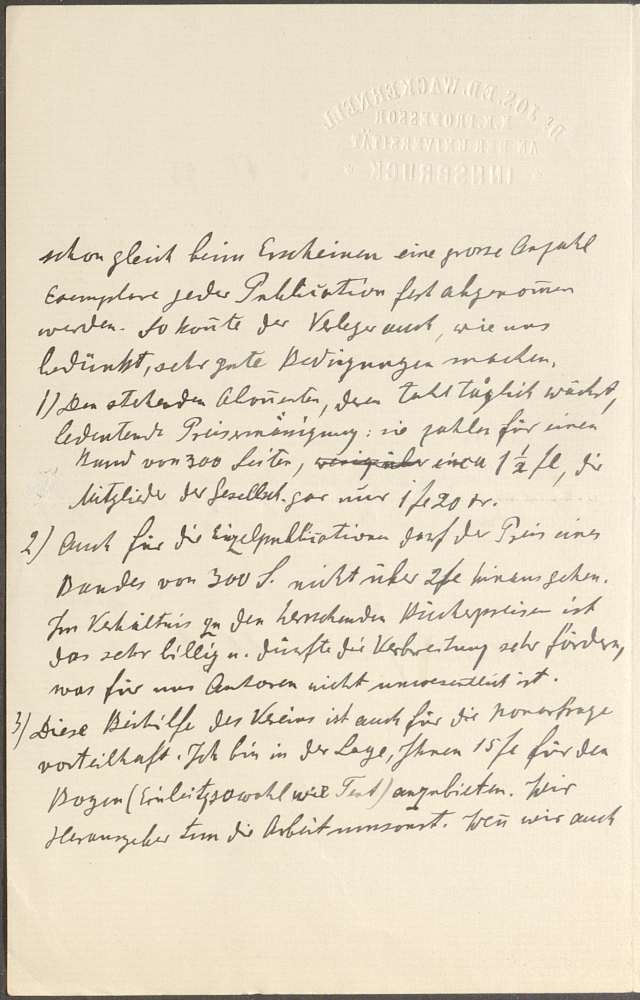 Dr JOS. ED. WACKERNELL
K. K. PROFESSOR
AN DER UNIVERSITÄT
INNSBRUCK
schon gleich beim Erscheinen eine grosse Anzahl
Exemplare jeder Publication fest abgenom̅en
werden. So kon̅te der Verleger auch, wie uns
bedünkt, sehr gute Bedingungen machen.
1) Den stehenden Abon̅enten, deren Zahl täglich wächst,
bedeutende Preisermässigung: sie zahlen für einen
Band von 300 Seiten, wenig über einen 1 1/2 fl, die
Mitglieder der Gesellsch. gar nur 1 fl 20 kr.
2) Auch für die Einzelpublicationen darf der Preis eines
Bandes von 300 S. nicht über 2 fl hinaus gehen.
Im Verhältnis zu den herrschenden Bücherpreisen ist
das sehr billig u. dürfte die Verbreitung sehr fördern,
was für uns Autoren nicht unwesentlich ist.
3) Diese Beihilfe des Vereins ist auch für die Honorarfrage
vorteilhaft. Ich bin in der Lage, Ihnen 15 fl für den
Bogen (Einleitg sowohl wie Text) anzubieten. Wir
Herausgeber tun die Arbeit umsonst. Wen̅ wir auch